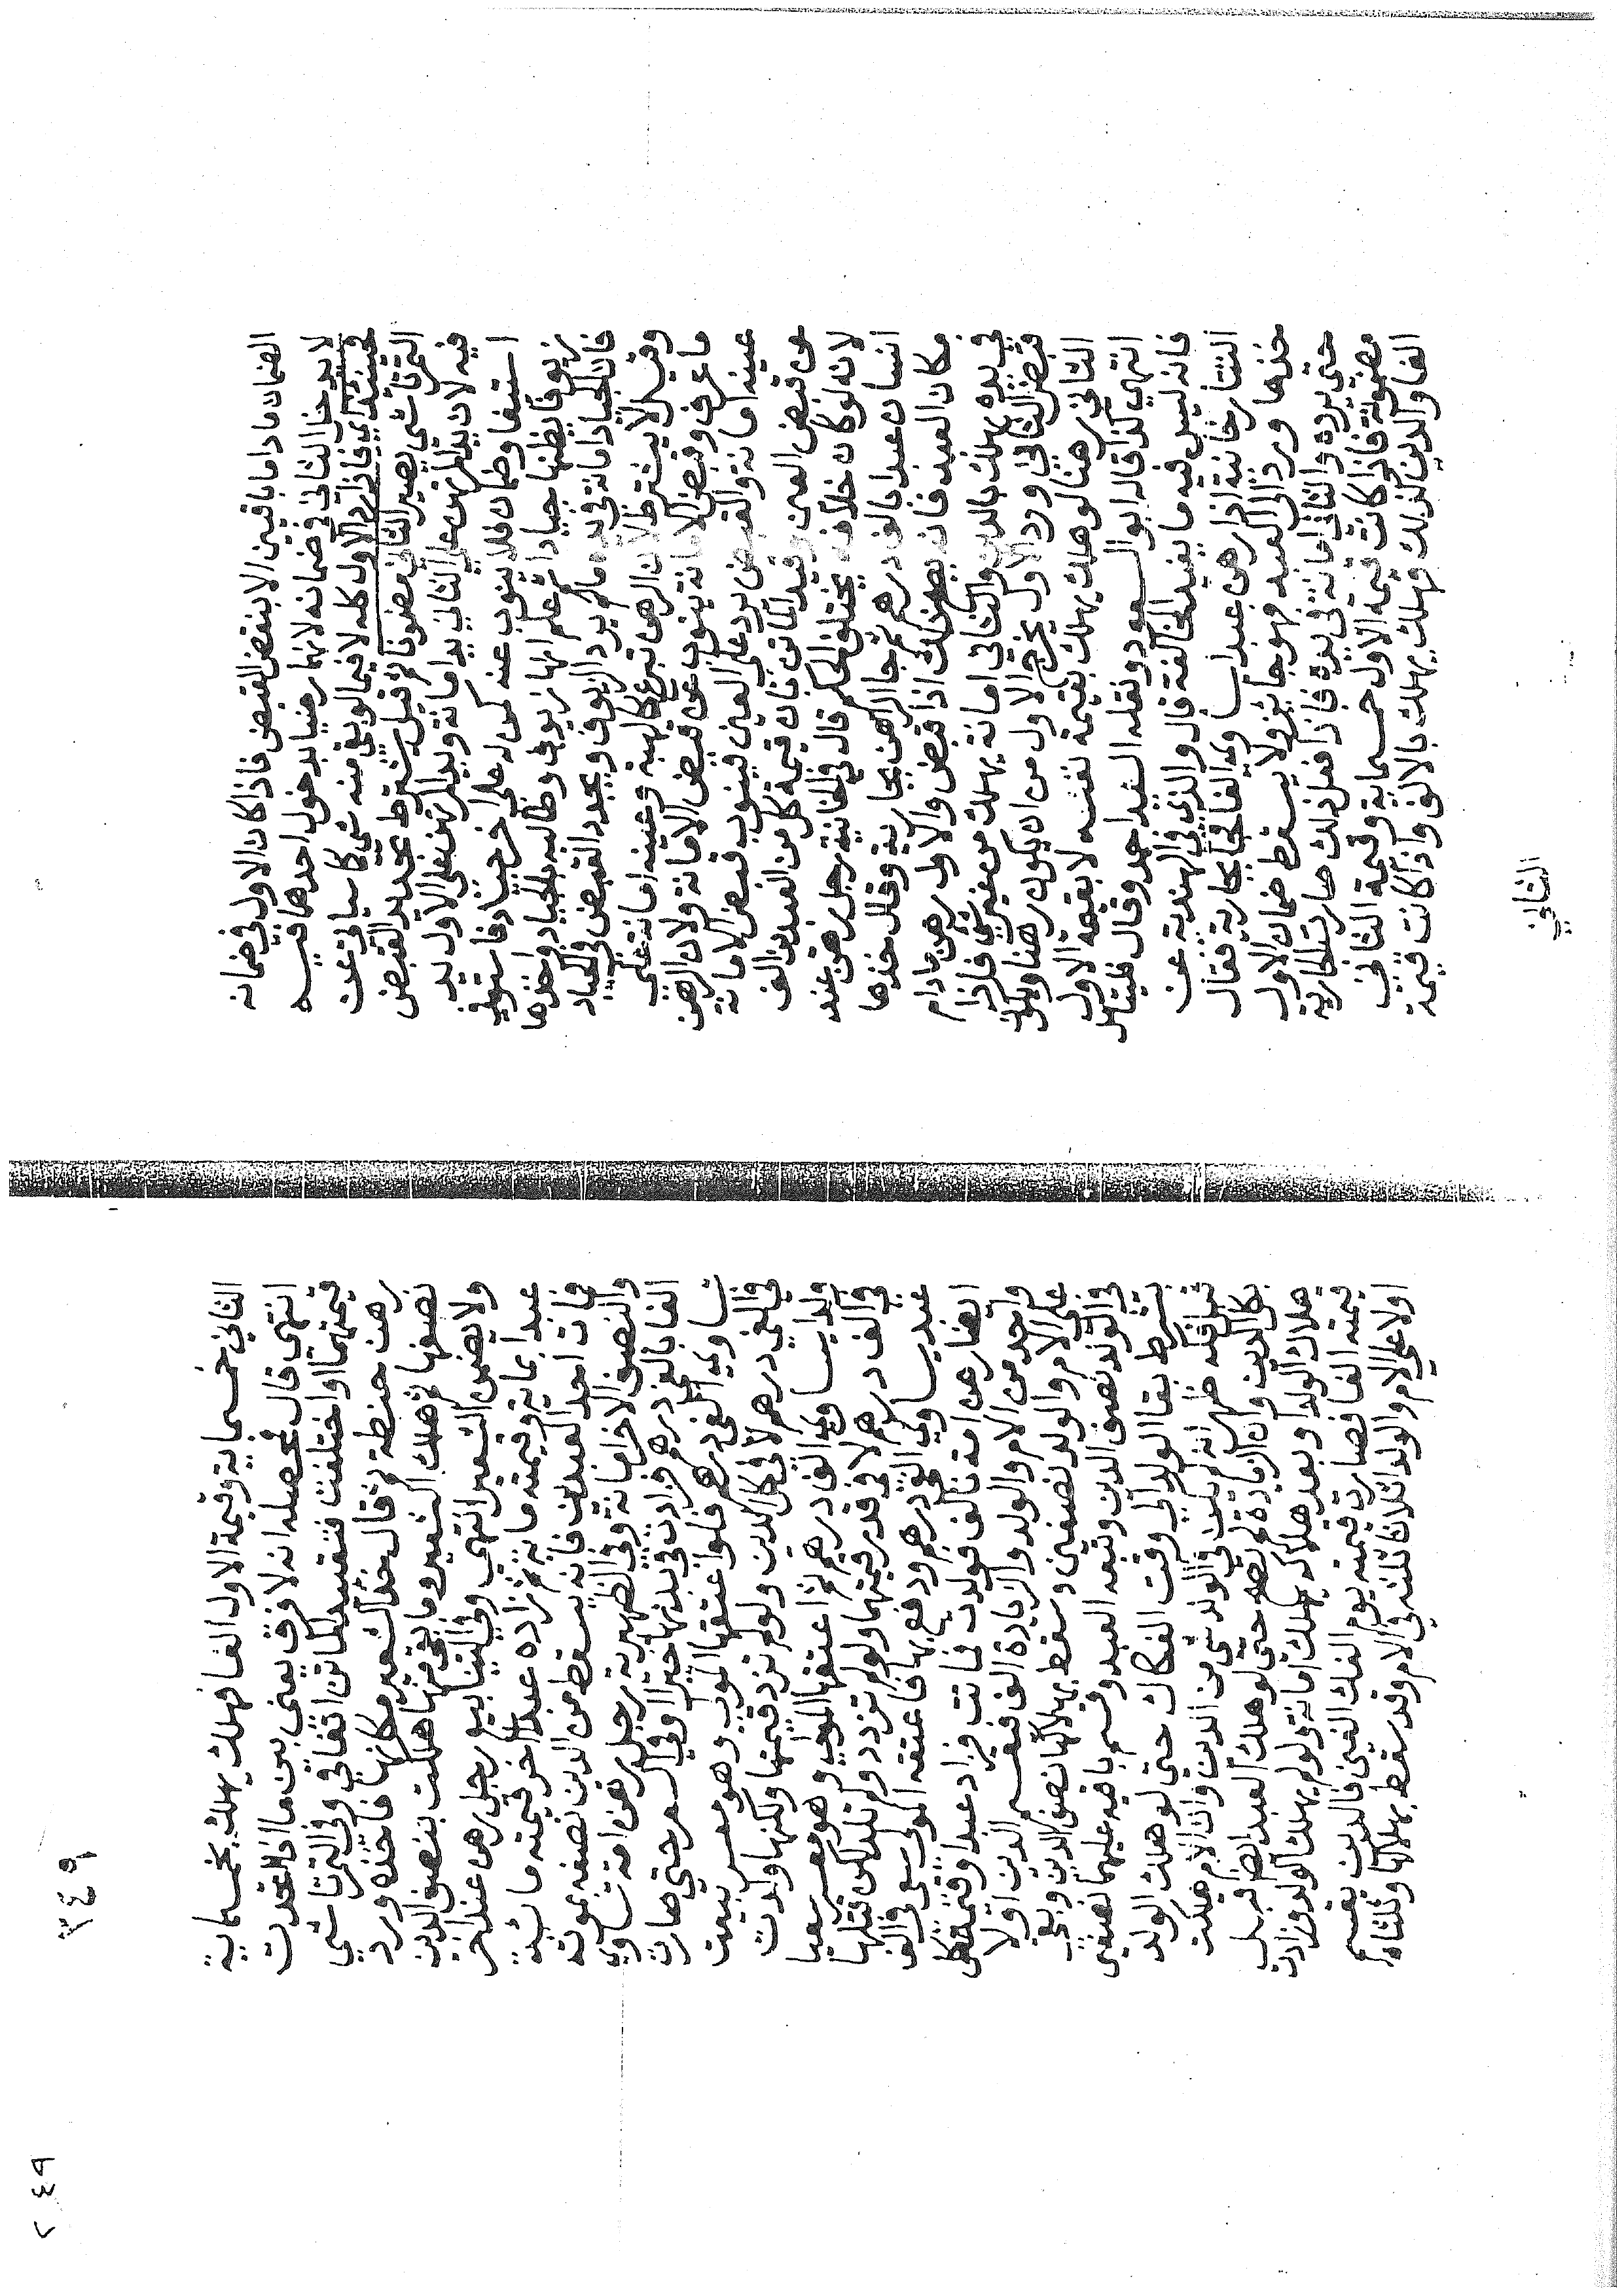 الضمان ما داما باقيين الا بنقض القبض فاذا كان الاول في ضمانه
لا يدخل الثاني في ضمانه لانهما رضيا بدخول احدهما فيه
فحينئذ اي فاذا رد الاول كله لا فيما لو بقي منه شي كما سياتي عن
التمرتاشي يصير الثاني مضمونا ثم قيل يشترط تجديد القبض
فيه لان يد المرتهن علي الثاني يد امانة ويد المرتهن علي الاول يد
استيفا وضمان فلا ينوب عنه كمن له علي اخر جياد فاستوفي
زيوفا يظنها جيادا ثم علم انها زيوف وطالبه بالجياد واخذها
فان الجياد امانة في يده ما لم يرد الزيوف ويجدد القبض في الجياد
وقيل لا يشترط لان الرهن تبرع كالهبة وعينه امانة علي
ما عرف وقبض الامانة ينوب عن قبض الامانة ولان الرهن
عينه امانة والقبض يرد علي العين فينوب قبض الامانة
عن قبض العين وقيد الماتن بان قيمة كل من العبدين الف
لانه لو كان خلافه يختلف الحكم قال في الخانية رجل رهن عند
انسان عبدا بالف درهم ثم جا الراهن بجارية وقال خذها
مكان العبد فان يصح ذلك اذا قبض والاول رهن مادام
في يده يهلك بالدين والثاني امانة يهلك من غير شي فاذا
قبض الثاني ورد الاول يخرج الاول من ان يكون رهنا ويكون
الثاني رهينا لو هلك يهلك بقيمة نفسه لا بقيمة الاول
انتهي كذا قاله ابو السعود ونقله السيد احمد وقال فليتامل
فانه ليس فيه ما يفيد المخالفة قال والذي في الهندية عن
التتارخانية اذا رهن عبدا يساوي الفا فجا بجارية فقال
خذها ورد الي العبد فهو جايز ولا يسقط ضمان الاول
حتي يرده والثاني امانة في يده فاذا فعل ذلك صارت الجارية
مضمونة فاذا كانت قيمة الاول خمسماية وقيمة الثاني
الفا والدين كذلك فهلك يهلك بالالف واذا كانت قيمة
الثاني
الثاني خمسماية وقيمة الاول الفا فهلك يهلك بخمسماية
انتهي قال فمحصله انه لا فرق يعني بين ما اذا اتحدت
قيمتهما او اختلفت فتقييد الماتن اتفاقي وفي التمرتاشي
رهن حنطة ثم قال خذ الشعير مكانها فاخذه ورد
نصفها ثم هلك الشعير وما بقي منها هلكت بنصف الدين
ولا يضمن الشعير انتهي وفي الينابيع رجل رهن عند اخر
عبدا بماية وقيمته ماية ثم زاده عبدا اخر قيمته مائة
فمات احد العبدين فانه يسقط من الدين نصفه بموته
والنصف الاخر امانة وفي الظهيرية رجل رهن امة تساوي
الفا بالف درهم فزادت في بدنها خيرا او في السعر حتي صارت
تساوي الفي درهم فلو اعتقها المولي وهو معسر سعت
في الفي درهم لا في كل الدين ولو لم تزد قيمتها ولكنها ولدت
ولدا يساوي الف درهم ثم اعتقها المولي وهو معسر سعيا
في الف درهم لا في قدر قيمتها ولو لم تزد ولم تلد لكن قتلها
عبد يساوي الفي درهم ودفع بها فاعتقه المولي سعي في الف
ايضا رهن امة بالف فولدت فماتت فزاد عبدا وقيمة كل
واحد من الام والولد والزيادة الف فقسم الدين اولا
علي الام والولد نصفين وسقط بهلاكها نصف الدين وبقي
في الولد نصف الدين وتبعه العبد وقسم باقيه عليهما نصفين
بشرط بقا الولد الي وقت الفكاك حتي لو هلك الولد
تبين انه لم يكن في الولد شي من الدين وان الام هلكت
بكل الدين وان الزيادة لم تصح حتي لو هلك العبد الزايد قبل
هلاك الولد او بعد هلاكه يهلك امانة ولو لم يهلك الولد وزادت
قيمته الفا فصارت قيمته يوم الفك الفين فالدين يقسم
اولا علي الام والولد اثلاثا ثلثه في الام وقد سقط بهلاكها وثلثاه
٣٤٩
٢٤٩